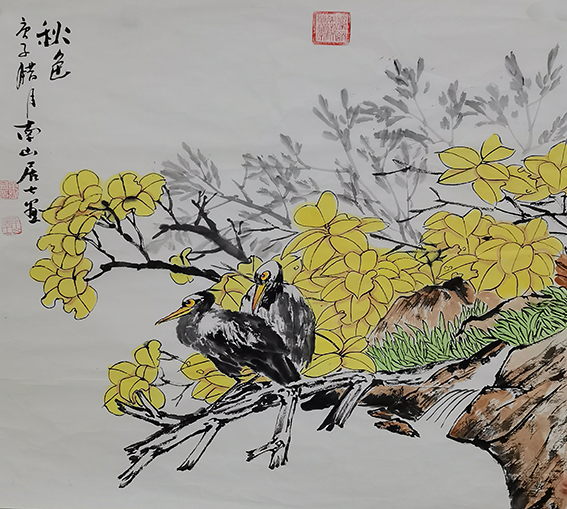 秋色
庚子腊月南山居士画